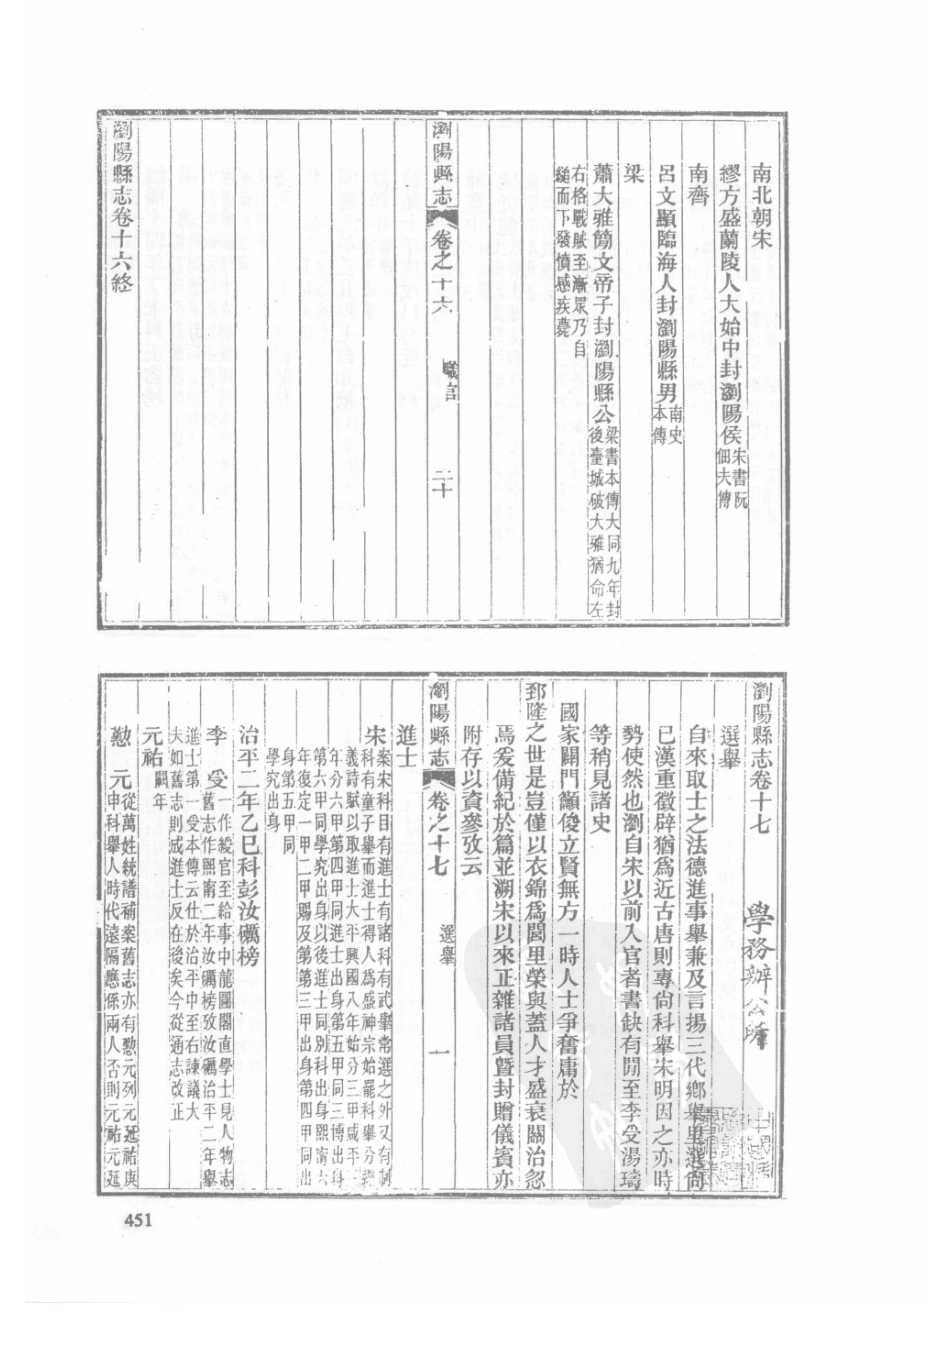 南北朝宋
繆方盛蘭陵人大始中封瀏陽侯宋書阮
佃夫傳
南齊
呂文顯臨海人封瀏陽縣男南史
本傳
梁
蕭大雅簡文帝子封瀏陽縣公梁書本傳大同九年封
後臺城破大雅猶命左
右格戰賊至漸眾乃自
縋而下發憤感疾薨
瀏陽縣志
卷之十六
二十
瀏陽縣志卷十六終
瀏陽縣志卷十七
學務辦公所
選舉
自來取士之法德進事舉兼及言揚三代鄉舉里選尚
已漢重徵辟猶為近古唐則專尚科舉宋明因之亦時
勢使然也瀏自宋以前入官者書缺有閒至李受湯璹
等稍見諸史
國家闢門籲俊立賢無方一時人士爭奮庸於
郅隆之世是豈僅以衣錦為閭里榮與蓋人才盛衰關治忽
焉爰備紀於篇並溯宋以來正雜諸員暨封贈儀賓亦
附存以資參攷云
瀏陽縣志
卷之十七
選舉
一
進士
宋案宋科目有進士有諸科有武舉常選之外又有制
科有童子舉而進士得人為盛神宗始罷科舉分經
義詩賦以取進士太平興國八年始分三甲咸平三
年分六甲第四甲同進士出身第五甲同三博出身
第六甲同學究出身以後進士同別科出身熙甯六
年復定一甲二甲賜及第第三甲出身第四甲同出
身第五甲同
學究出身
治平二年乙巳科彭汝礪榜
李　受一作綬官至給事中龍圖閣直學士見人物志
舊志作熙甯二年汝礪榜攷汝礪治平二年舉
進士第一受本傳云仕於治平中至右諫議大
夫如舊志則成進士反在後矣今從通志改正
元祐闕年
懃　元從萬姓統譜補案舊志亦有懃元列元延祐庚
申科舉人時代遠隔應係兩人否則元祐元延
451